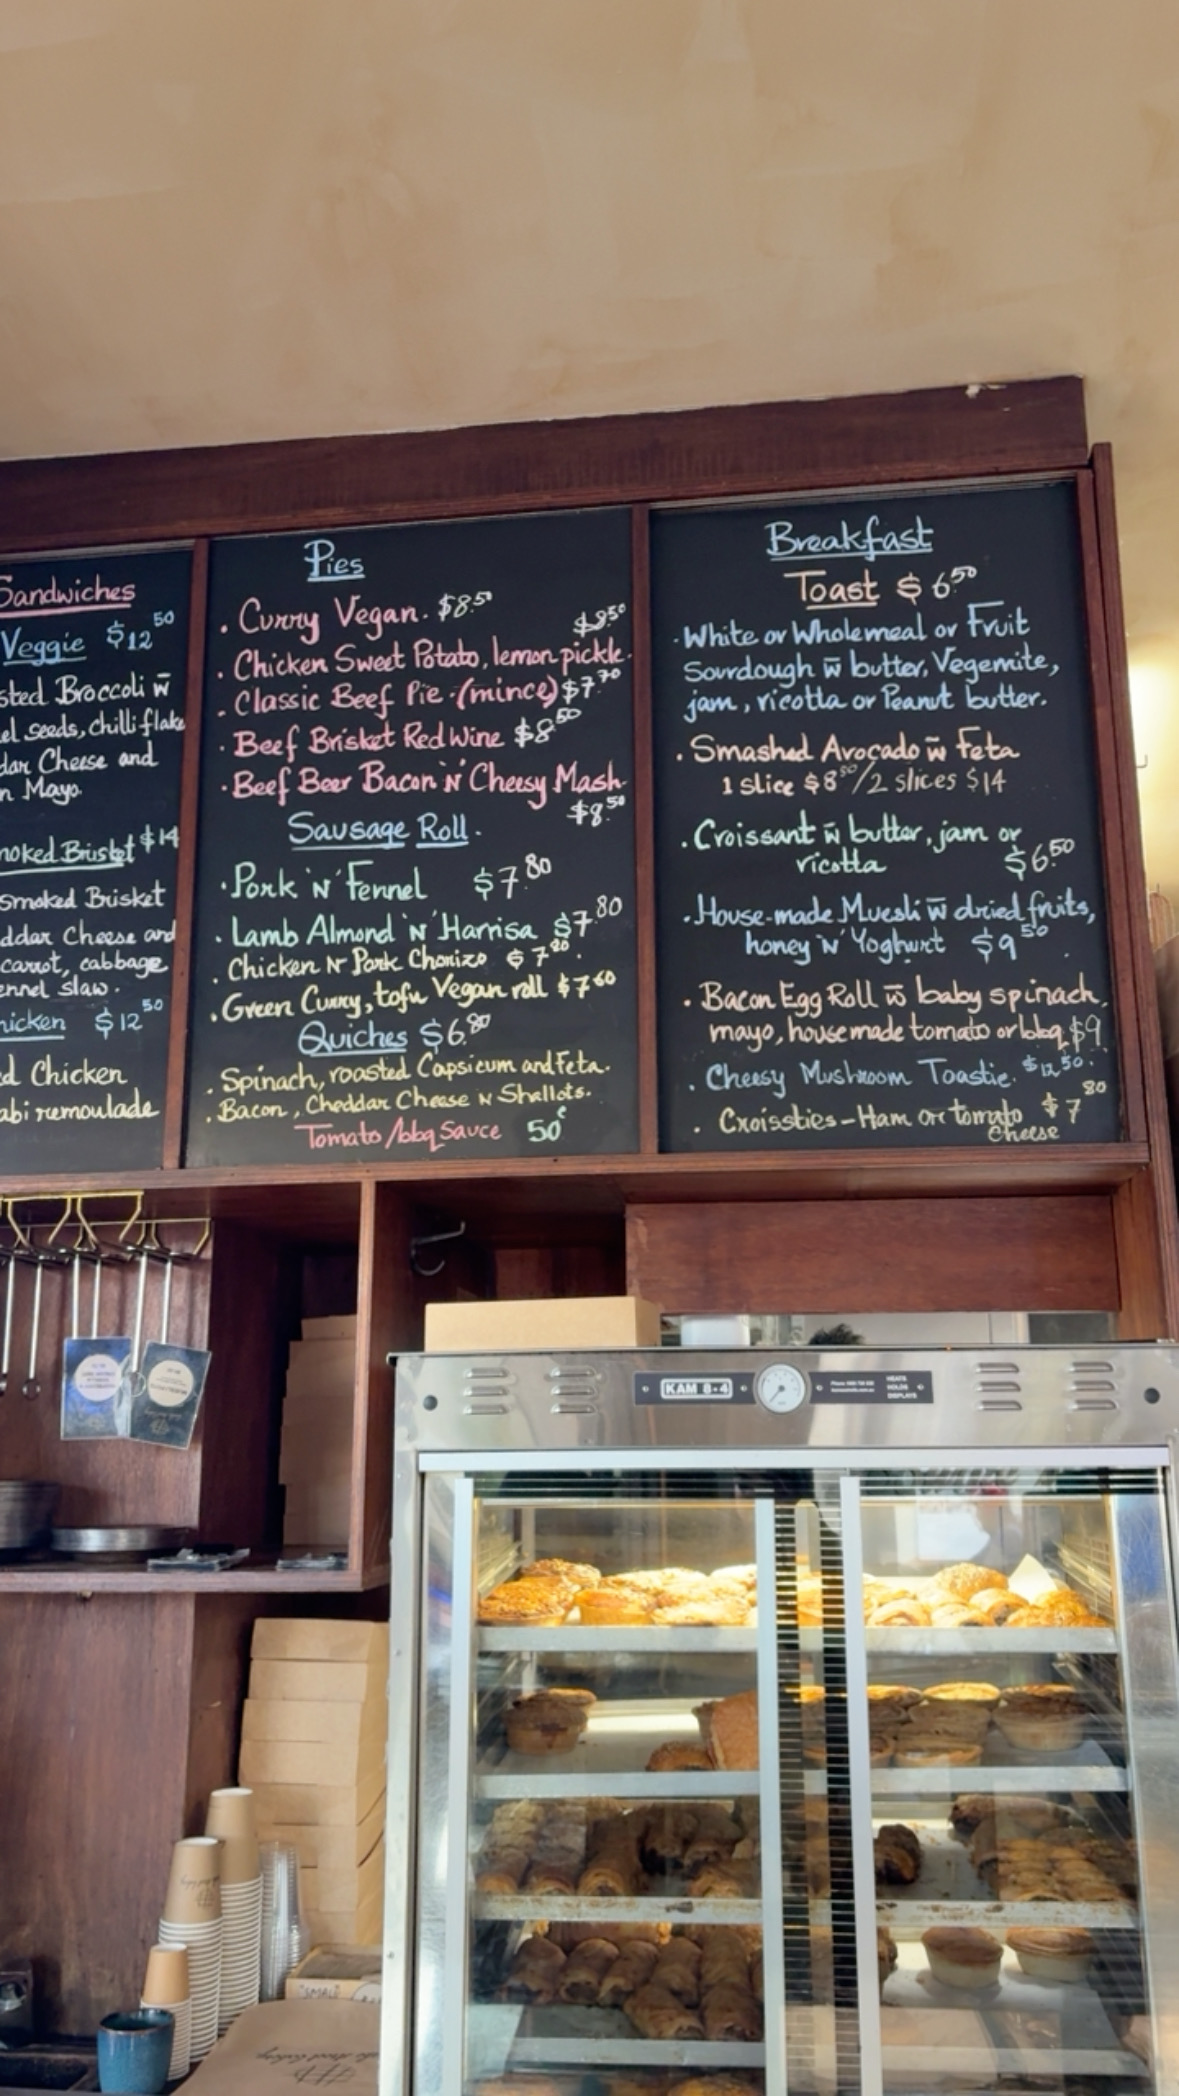 Sandwiches
Veggie $12.50
Broccoli w̄
seeds, chilli flake
Cheese and
Mayo.
Brisket $14
Smoked Brisket
Cheese and
carrot, cabbage
slaw.
$12.50
Chicken
remoulade
Pies
. Curry Vegan. $8.50
$8.50
. Chicken Sweet Potato, lemon pickle.
. Classic Beef Pie. (mince) $7.70
. Beef Brisket Red Wine $8.50
. Beef Beer Bacon 'N' Cheesy Mash.
$8.50
Sausage Roll.
. Pork 'N' Fennel $7.80
. Lamb Almond 'N' Harrisa $7.80
. Chicken N Pork Chorizo $7.80.
. Green Curry, tofu Vegan roll $7.60
Quiches $6.80
. Spinach, roasted Capsicum and Feta.
. Bacon, Cheddar Cheese N Shallots.
Tomato/bbq Sauce 50¢
Breakfast
Toast $6.50
. White or Wholemeal or Fruit
Sourdough w̄ butter, Vegemite,
jam, ricotta or Peanut butter.
. Smashed Avocado w̄ Feta
1 slice $8.50/2 slices $14
. Croissant w̄ butter, jam or
ricotta $6.50
. House-made Muesli w̄ dried fruits,
honey 'N' Yoghurt $9.50
. Bacon Egg Roll w̄ baby spinach,
mayo, housemade tomato or bbq $9
. Cheesy Mushroom Toastie. $12.50.
. Croissties - Ham or tomato $7.80
Cheese
KAM 8-4
HEATS
HOLDS
DISPLAYS
SMALL